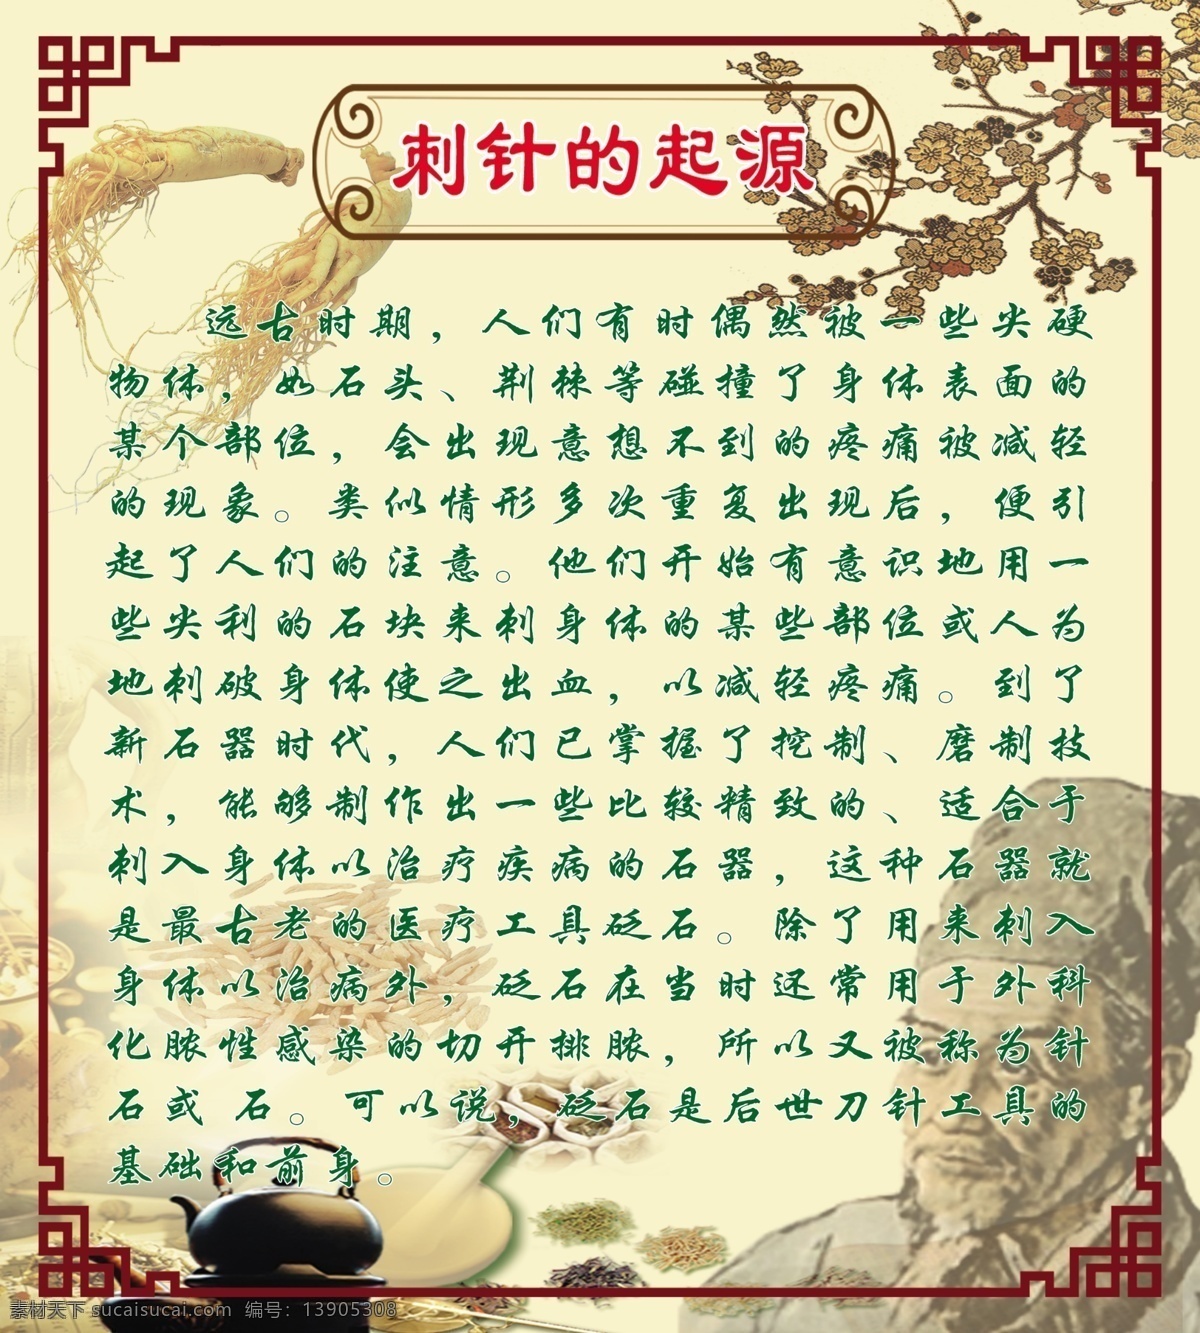 刺针的起源
远古时期，人们有时偶然被一些尖硬
物体，如石头、荆棘等碰撞了身体表面的
某个部位，会出现意想不到的疼痛被减轻
的现象。类似情形多次重复出现后，便引
起了人们的注意。他们开始有意识地用一
些尖利的石块来刺身体的某些部位或人为
地刺破身体使之出血，以减轻疼痛。到了
新石器时代，人们已掌握了挖制、磨制技
术，能够制作出一些比较精致的、适合于
刺入身体以治疗疾病的石器，这种石器就
是最古老的医疗工具砭石。除了用来刺入
身体以治病外，砭石在当时还常用于外科
化脓性感染的切开排脓，所以又被称为针
石或 石。可以说，砭石是后世刀针工具的
基础和前身。
素材天下 sucaisucai.com 编号：13905308